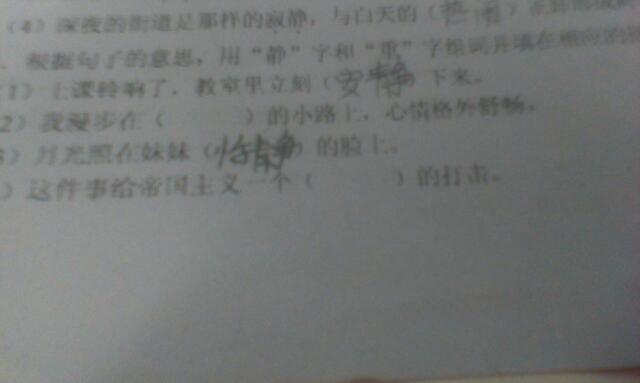 （4）深夜的街道是那样的寂静，与白天的（热闹）
根据句子的意思，用“静”字和“重”字组词并填在相应的
1）上课铃响了，教室里立刻（安静）下来。
2）我漫步在（ ）的小路上，心情格外舒畅。
3）月光照在妹妹（恬静）的脸上。
）这件事给帝国主义一个（ ）的打击。